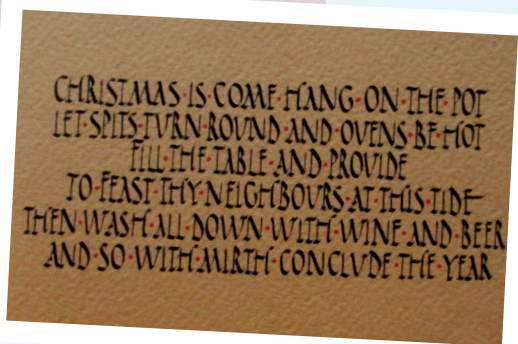 CHRISTMAS·IS·COME·HANG·ON·THE·POT
LET·SPITS·TVRN·ROUND·AND·OVENS·BE·HOT
FILL·THE·TABLE·AND·PROVIDE
TO·FEAST·THY·NEIGHBOURS·AT·THIS·TIDE
THEN·WASH·ALL·DOWN·WITH·WINE·AND·BEER
AND·SO·WITH·MIRTH·CONCLVDE·THE·YEAR